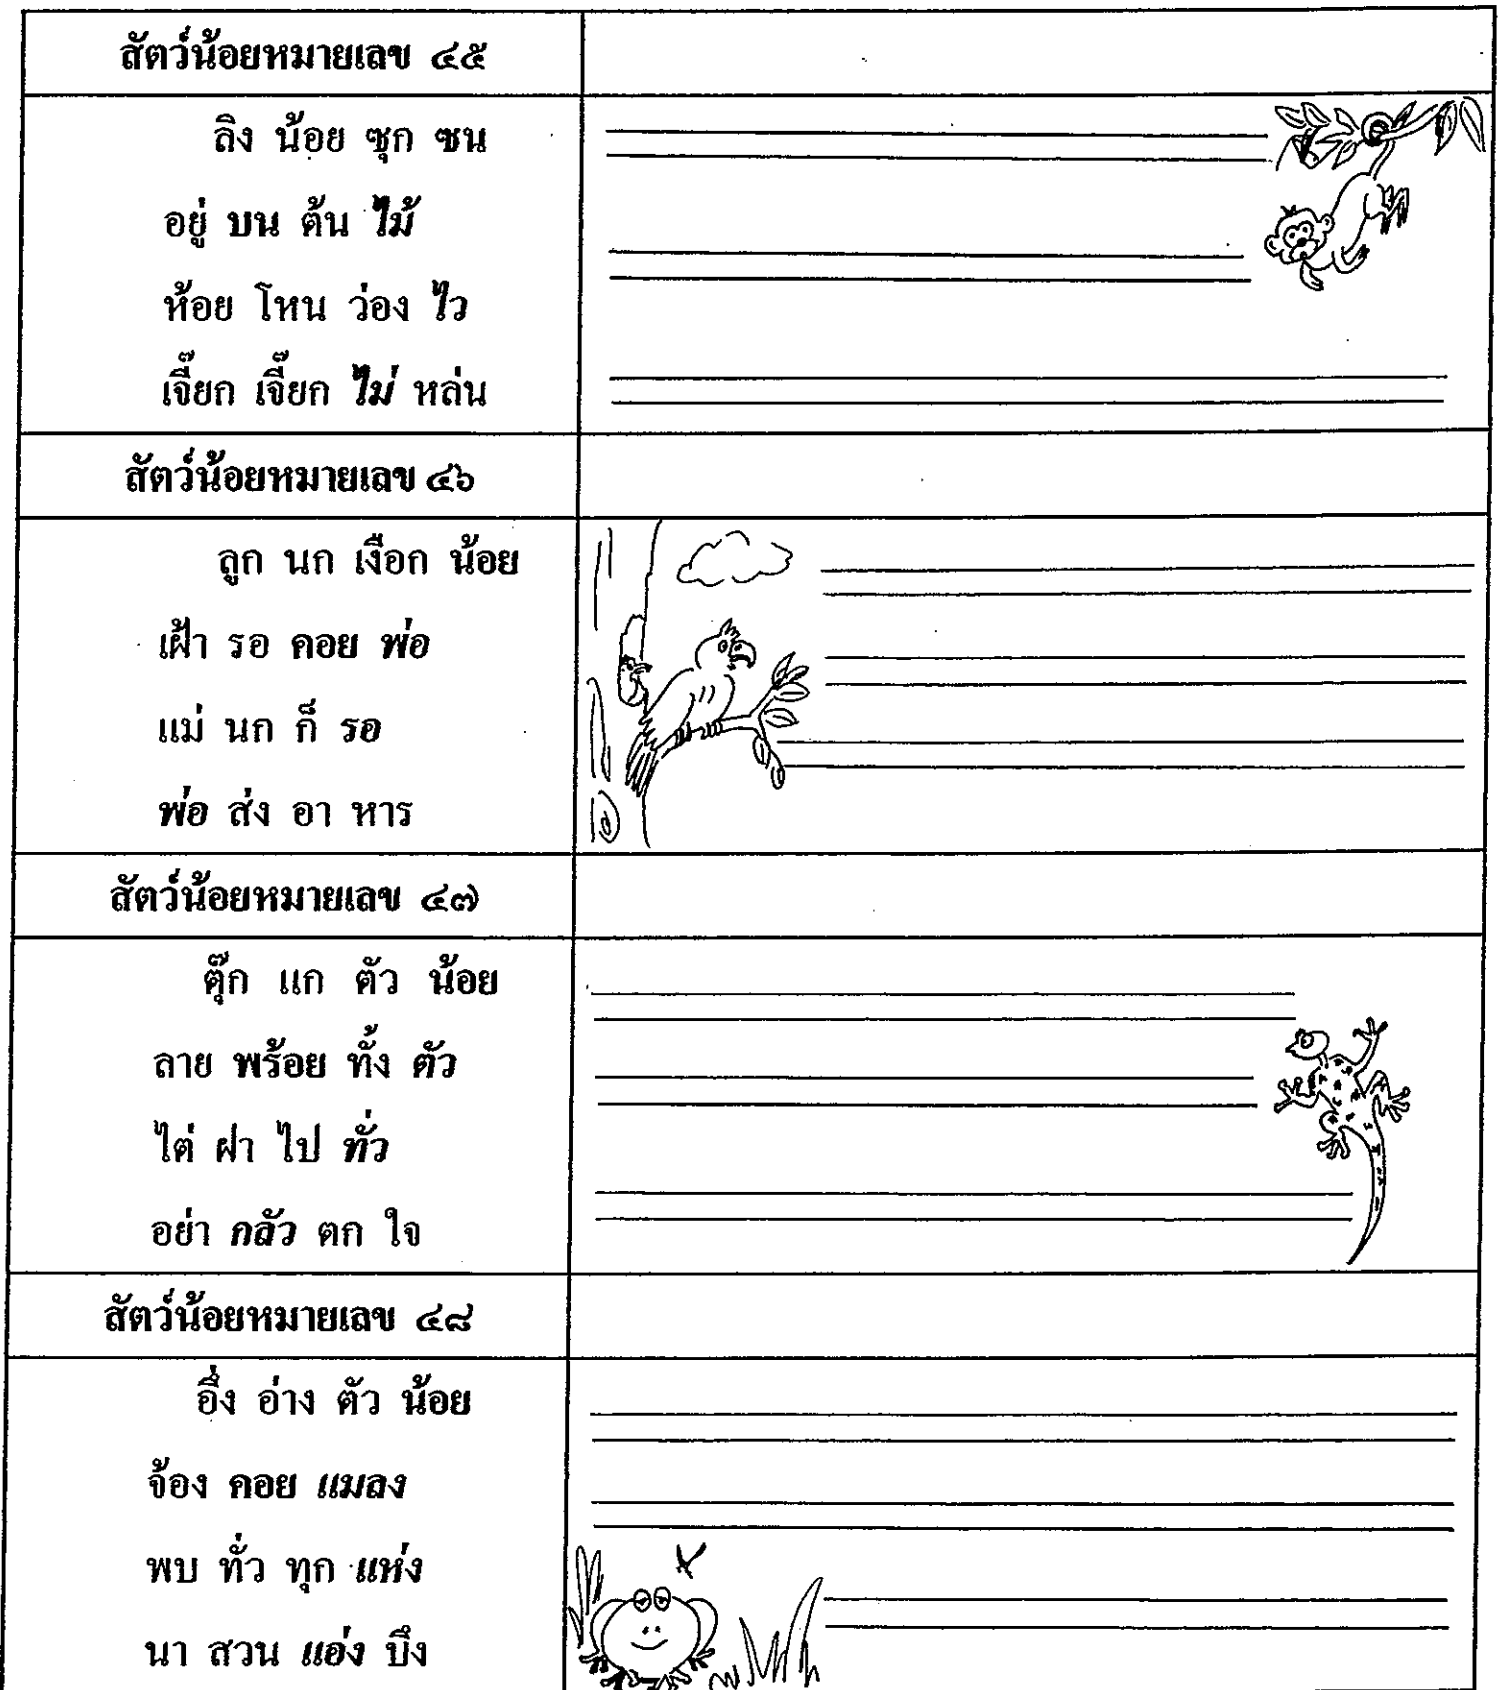 สัตว์น้อยหมายเลข ๔๕
ลิง น้อย ซุก ซน
อยู่ บน ต้น ไม้
ห้อย โหน ว่อง ไว
เจี๊ยก เจี๊ยก ไม่ หล่น
สัตว์น้อยหมายเลข ๔๖
ลูก นก เงือก น้อย
เฝ้า รอ คอย พ่อ
แม่ นก ก็ รอ
พ่อ ส่ง อา หาร
สัตว์น้อยหมายเลข ๔๗
ตุ๊ก แก ตัว น้อย
ลาย พร้อย ทั้ง ตัว
ไต่ ฝา ไป ทั่ว
อย่า กลัว ตก ใจ
สัตว์น้อยหมายเลข ๔๘
อึ่ง อ่าง ตัว น้อย
จ้อง คอย แมลง
พบ ทั่ว ทุก แห่ง
นา สวน แอ่ง บึง